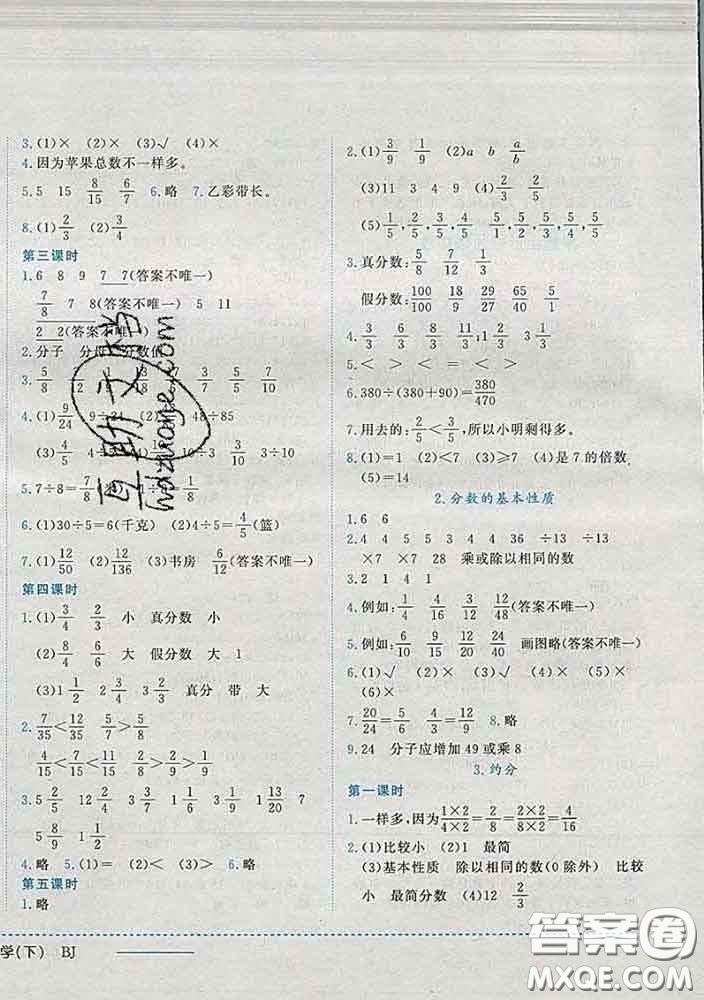 3.(1)× (2)× (3)√ (4)×
4.因为苹果总数不一样多。
5.5 15 8/15 6/7 6.略 7.乙彩带长。
8.(1)2/3 (2)3/4
第三课时
1.6 8 9 7 7(答案不唯一)
7/8 7 8(答案不唯一) 5 11
2 2(答案不唯一)
2.分子 分母 分数值
4.(1)9/24 9÷24 (2)48/85 48÷85
(3)4/5 4÷5 10÷30 3÷10 3/10
5.7÷8=7/8 1÷8=1/8
6.(1)30÷5=6(千克) (2)4÷5=4/5(篮)
7.(1)12/50 (2)12/136 (3)书房 6/12(答案不唯一)
第四课时
1.(1)3/4 2/3 小 真分数 小
(2)8/4 6/6 大 假分数 大 1
(3)1 1/2 2 3/4 3 1/2 真分 带 大
2.7/35<12/35 5/8>5/8
4/15<7/15<11/15 2/8>2/9>1/9
3.5 2/5 4 2/5 3 3/7 1 1/6 3 1/9 1 3/20 8 2/7
5 8/9 1 1/2
4.略 5.(1)= (2)< (3)> 6.略
第五课时
1.略
学(下) BJ
2.(1)3/9 1/9 (2)a b a/b
(3)11 3 4 9 (4)8/9 1/9
(5)1/5, 2/5, 3/5, 4/5, 5/5 5/1 5/2 5/3 5/4 5/5
3.真分数:5/8 7/9 1/5
假分数:100/100 18/18 29/27 65/40 5/1
4.3/3 3/6 4/4 1 4/8 3 1/3
5.< > < = <
6.380÷(380+90)=380/470
7.用去的:2/5<3/5,所以小明剩得多。
8.(1)=1 (2)<7 (3)≥7 (4)是7的倍数
(5)=14
2.分数的基本性质
1.6 6
2.×4 ×4 ÷36 ÷36 ÷13 ÷13
×7 ×7 28 28 乘或除以相同的数
3.2 1 4 1
4.例如:1/4 4/16 3/12 12/48(答案不唯一)
5.例如:6/10 9/15 12/20 24/40 画图略(答案不唯一)
6.(1)√ (2)× (3)× (4)× (5)√
(6)×
7.20/24=5/6 4/3=12/9 8.略
9.24 分子应增加49或乘8
3.约分
第一课时
1.一样多,因为1×2/4×2=2/8=2×2/8×2=4/16
2.(1)比较小 (2)1 最简
(3)基本性质 除以相同的数(0除外) 比较
小 最简分数 (4)12 2/3
答案卷
MXQE.COM